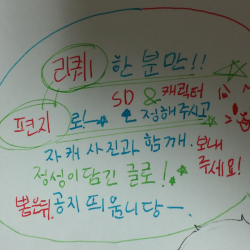 리퀘 한 분만!!
SD & 캐릭터
편지로! 정해주시고
자캐 사진과 함께. 보내
정성이 담긴 글로! 주세요!
뽑은뒤, 공지 띄웁니당